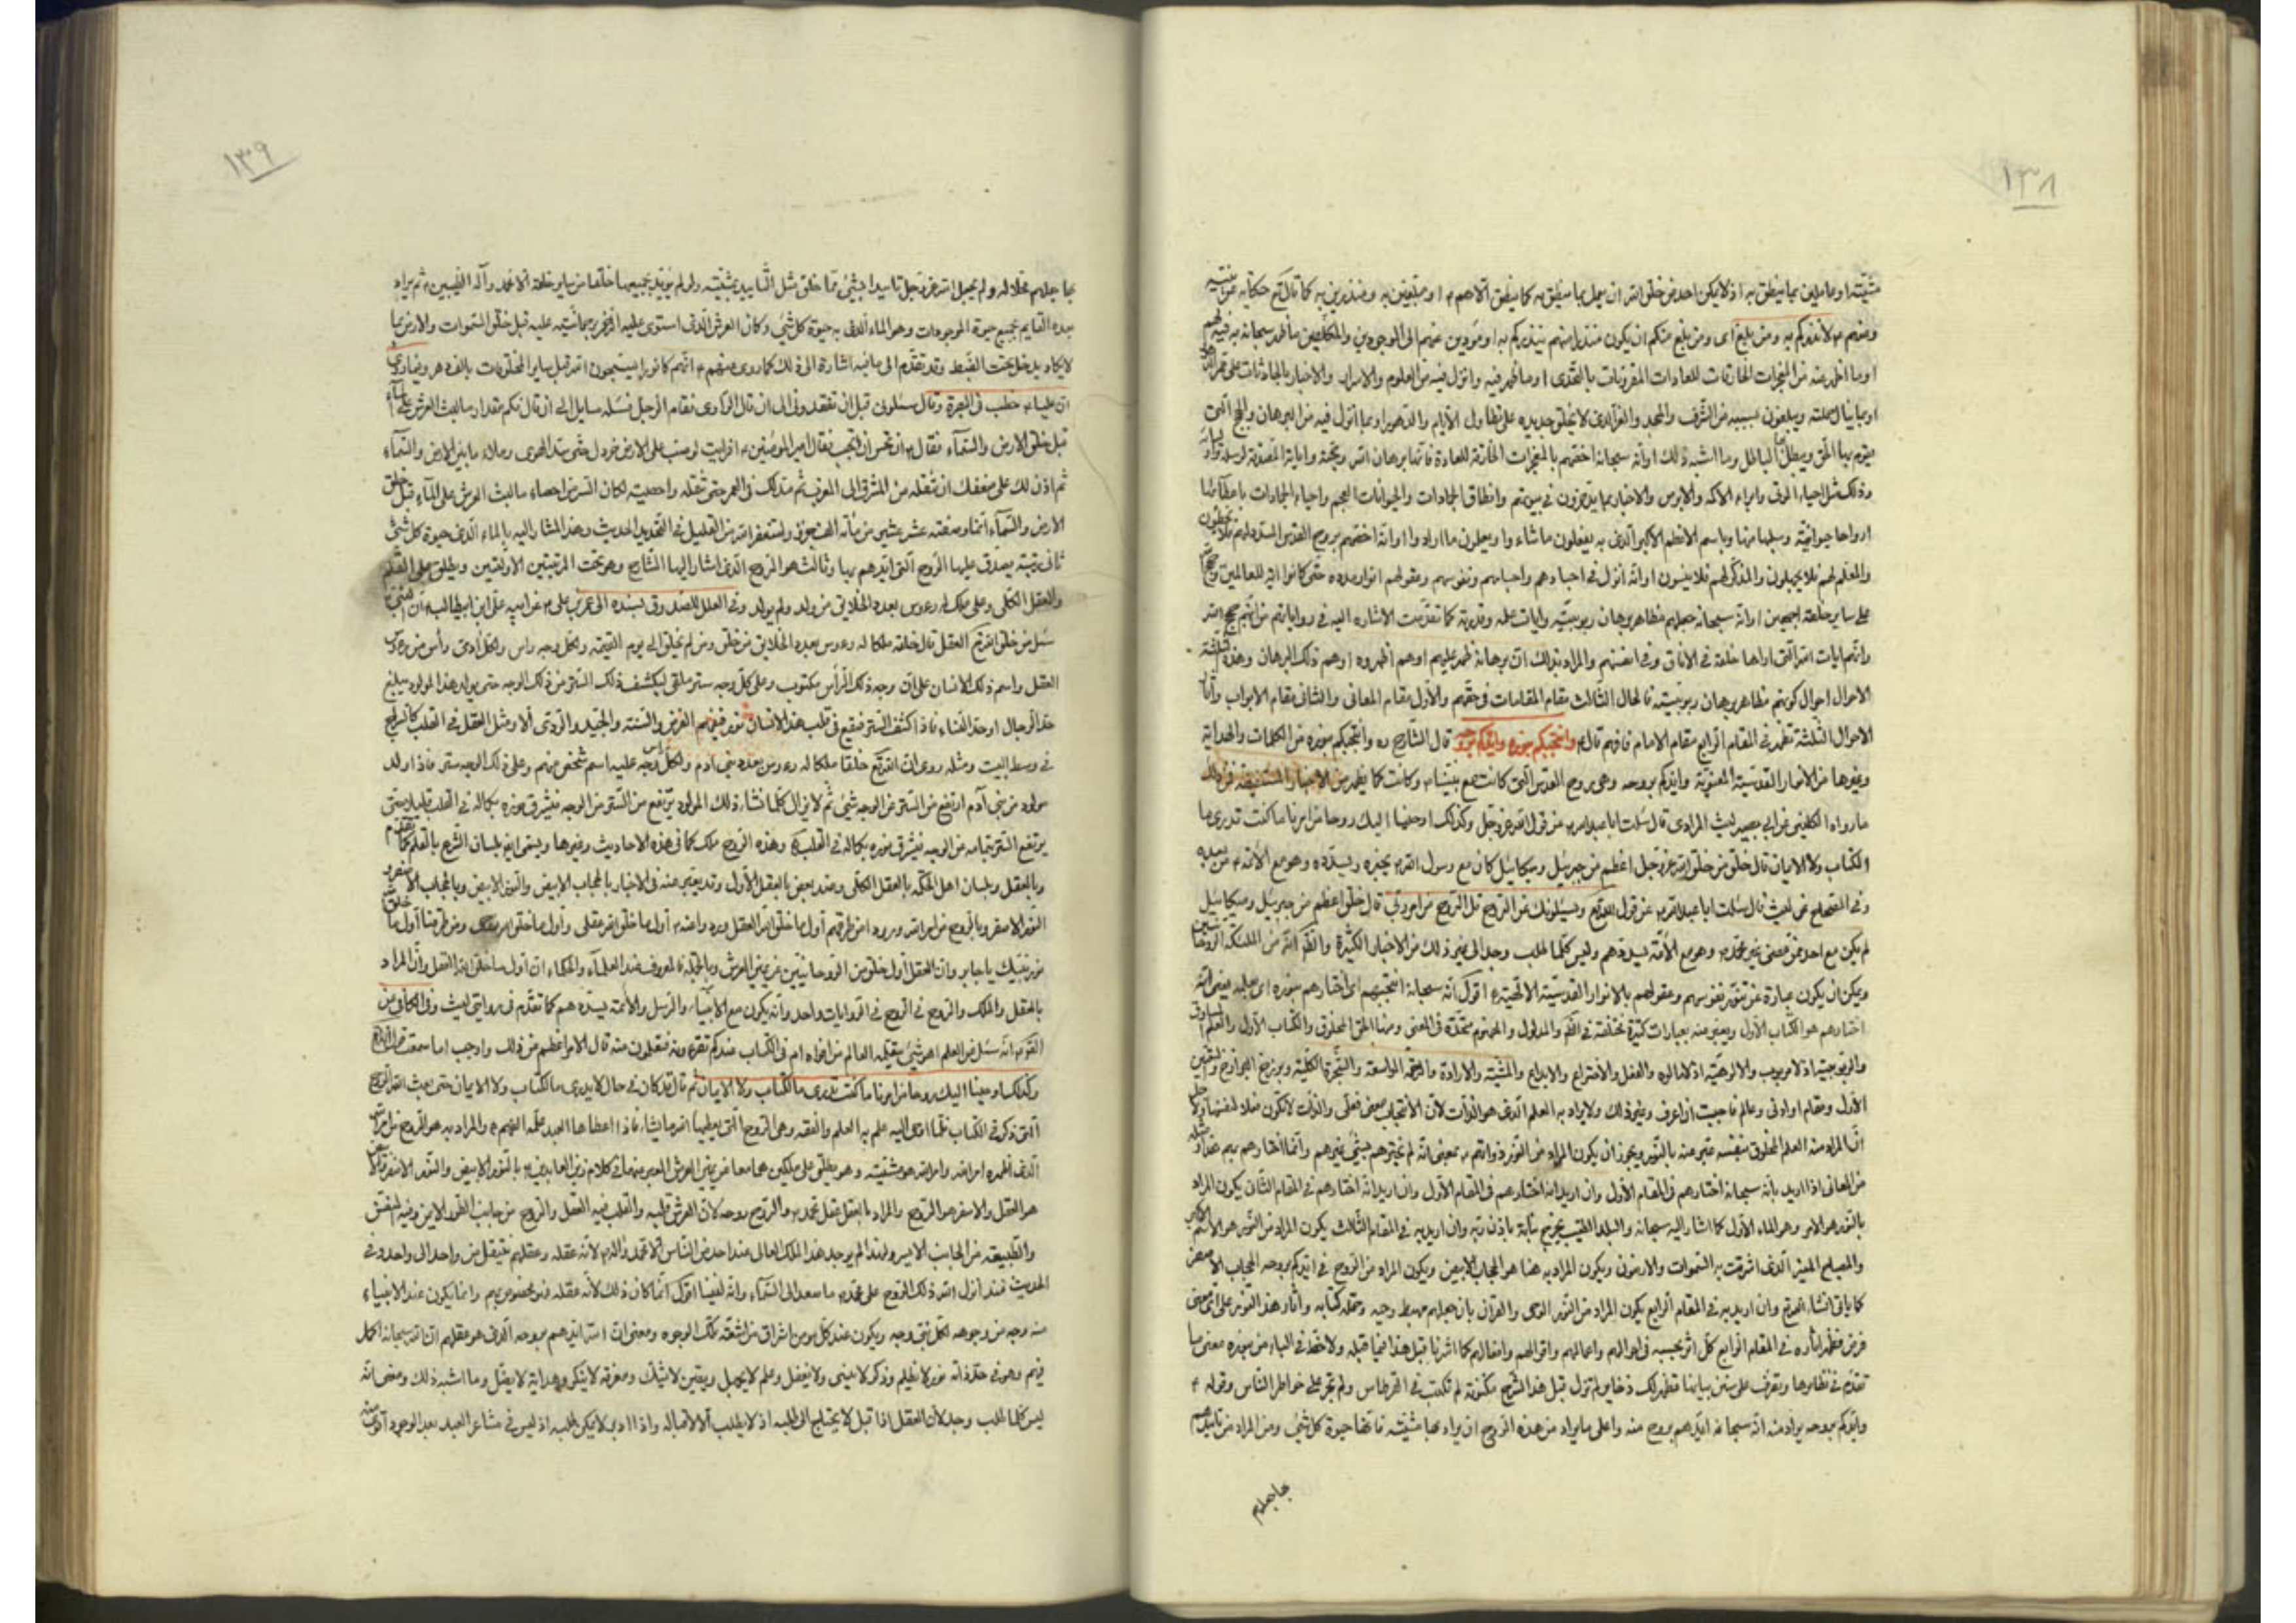 ١٣٨
مشيته او حاملين بما ينطق به اذ لا يكن احد من خلق الله ان يعمل بما ينطق به كما ينطق الا هم ع او مبلغين به ومنذرين به كما قال تع حكاية عن نبيه
ومنهم ص لانذركم به ومن بلغ اى ومن بلغ منكم ان يكون منذرا منهم ينذركم به او مؤدين عنهم الى الموجودين والمكلفين ما اظهر سبحانه به فيه لهم
او ما اظهر عنه من المعجزات الخارقات للعادات المقرونات بالتحدى او ما اظهر فيه وانزل فيه من العلوم والاسرار والاخبار بالحادثات على
او بما ينال حملته ويبلغون بسببه من الشرف والمجد والعز الذى لا يخلق جديده على تطاول الايام والدهور او بما انزل فيه من البرهان والحجج التى
يقوم بها الحق ويبطل بها الباطل وما اشبه ذلك او انه سبحانه اختصهم بالمعجزات الخارقة للعادة فانها برهان الله وحجته واياته المصدقة لرسله
وذلك مثل احياء الموتى وابراء الاكمه والابرص والاخبار بما يدخرون فى بيوتهم وانطاق الجمادات والحيوانات العجم واحياء الجمادات باعطائها
ارواحا حيوانية وسلبها منها وباسم الاعظم الاكبر الذى به يفعلون ما شاءوا ويعملون ما ارادوا او انه اختصهم بروح القدس المسدد لهم فلا يخطئون
والمعلم لهم فلا يجهلون والمذكر لهم فلا ينسون او انه انزل فى اجسادهم واجسامهم ونفوسهم وعقولهم انوار مدده حتى كانوا اية للعالمين
على ساير خلقه اجمعين او انه سبحانه جعلهم مظاهر برهان ربوبيته وايات علمه وقدرته كما تقدمت الاشاره اليه فى رواياتهم من انهم حجج الله
وانهم ايات الله التى اراها خلقه فى الافاق وفى انفسهم والمراد بذلك ان برهانه ظهر عليهم او هم اظهروه او هم ذلك البرهان وهذه الثلثة
الاحوال احوال كونهم مظاهر برهان ربوبيته فالحال الثالث مقام المقامات فى حقهم والاول مقام المعانى والثانى مقام الابواب
الاحوال الثلثة تظهر فى المقام الرابع مقام الامام فافهم قال ع وانتجبكم بنوره وايدكم بروحه قال الشارح ره وانتجبكم بنوره من الكلمات والهداية
وغيرها من الانوار القدسية المعنوية وايدكم بروحه وهى روح القدس التى كانت مع نبينا ص وكانت كما يظهر من الاخبار المستفيضة فمن ذلك
ما رواه الكلينى عن ابى بصير ليث المرادى قال سئلت ابا عبد الله ع عن قول الله عز وجل وكذلك اوحينا اليك روحا من امرنا ما كنت تدرى ما
الكتاب ولا الايمان قال خلق من خلق الله عز وجل اعظم من جبرئيل وميكائيل كان مع رسول الله ص يخبره ويسدده وهو مع الائمة ع من بعده
وفى الصحيح عن ليث قال سئلت ابا عبد الله ع عن قول الله تع ويسئلونك عن الروح قل الروح من امر ربى قال خلق اعظم من جبرئيل وميكائيل
لم يكن مع احد ممن مضى غير محمد ص وهو مع الائمة يسددهم وليس كلما طلب وجد الى غير ذلك من الاخبار الكثيرة والظ انه من الملئكة الروحانيين
ويمكن ان يكون عبارة عن تنور نفوسهم وعقولهم بالانوار القدسية الالهية ه اقول انه سبحانه انتجبهم اى اختارهم بنوره اى بعلمه فمعنى انه
اختارهم هو الكتاب الاول ويعبر عنه بعبارات كثيرة مختلفة فى اللفظ والمدلول والمفهوم متحدة فى المعنى ومنها الحق المخلوق والكتاب الاول والعلم
والربوبية اذ لا مربوب والالوهية اذ لا مالوه والفعل والاختراع والابداع والمشية والارادة والرحمة الواسعة والشجرة الكلية وبرزخ البرازخ والتعين
الاول ومقام او ادنى وعالم فاحببت ان اعرف وغير ذلك ولا يراد به العلم الذى هو الذات لان الانتجاب معنى فعلى والذات لا تكون فعلا لنفسها
انما المراد منه العلم المخلوق بنفسه عبر عنه بالنور ويجوز ان يكون المراد من النور ذواتهم ع بمعنى انه لم يخترهم بشئ غيرهم وانما اختارهم بهم
من المعانى اذا اريد بانه سبحانه اختارهم فى المقام الاول وان اريد انه اختارهم فى المقام الاول وان اريد انه اختارهم فى المقام الثانى يكون المراد
بالنور هو الامر وهو الماء الاول كما اشار اليه سبحانه والبلد الطيب يخرج نباته باذن ربه وان اريد به فى المقام الثالث يكون المراد من النور هو الاسم
والمصباح المنير الذى اشرقت به السموات والارضون ويكون المراد به هنا هو الحجاب الابيض ويكون المراد من الروح فى ايدكم بروحه الحجاب الاصفر
كما ياتى انشاء الله تع وان اريد به فى المقام الرابع يكون المراد من النور الوحى والقران بان جعلهم مهبط وحيه وحملة كتابه واثار هذا النور على اى
فرض فظهر اثاره فى المقام الرابع كل اثر بحسبه فى احوالهم واعمالهم واقوالهم وافعالهم كما اشرنا قبل هذا فيما قبله ولاخظ فى الباء من بنوره معنى ما
تقدم فى نظايرها وتعرف على سنن بياننا فتظهر لك ذخاير لم تزل قبل هذا الشرح مكنونة لم تكتب فى القرطاس ولم تجر على خواطر الناس وقوله ع
وايدكم بروحه يراد منه انه سبحانه ايدهم بروح منه واعلى ما يراد من هذه الروح ان يراد بها مشيته فانها حيوة كل شئ ومن المراد من تاييدهم
بها جعلهم
١٣٩
بها جعلهم محلا له ولم يجعل الله عز وجل تاييدا بشئ مما خلق مثل التاييد بمشيته ولم يؤيد بجميعها خلقا من ساير خلقه الا محمد وآله الطيبين ع ثم يراد
بعده القايم بجميع حيوة الموجودات وهو الماء الذى به حيوة كل شئ وكان العرش الذى استوى عليه الرحمن برحمانيته عليه قبل خلق السموات والارض بما
لا يكاد يدخل تحت الضبط وقد تقدم الى ما فيه اشارة الى ذلك كما روى عنهم ع انهم كانوا يسبحون الله قبل ساير المخلوقات بالف دهر وفيما روى
ان عليا ع خطب فى البصرة وقال سلونى قبل ان تفقدونى الى ان قال الراوى فقام الرجل فسئله سايل الى ان قال فكم مقدار ما لبث العرش على الماء
قبل خلق الارض والسماء فقال ع اتحسن ان تحسب فقال امير المؤمنين ع افرايت لو صب على الارض خردل حتى سد الهوى وملاء ما بين الارض والسماء
ثم اذن لك على ضعفك ان تنقله من المشرق الى المغرب ثم مد لك فى العمر حتى تنقله واحصيته لكان ايسر من احصاء ما لبث العرش على الماء قبل خلق
الارض والسماء انما وصفته عشر عشير من مائة الف جزء واستغفر الله من القليل فى التحديد الحديث وهذا المشار اليه بالماء الذى حيوة كل شئ
ثانى مرتبة يصدق عليها الروح التى ايدهم بها وثالث هو الروح الذى اشار اليها الشارح وهو تحت المرتبتين الاولتين ويطلق على القلم
والعقل الكلى وعلى ملك له رءوس بعدد الخلائق من ولد ولم يولد وفى العلل للصدوق بسنده الى عمر بن على ع عن ابيه على ابن ابيطالب ع ان النبى ص
سئل مم خلق الله تع العقل قال خلقه ملكا له رءوس بعدد الخلايق من خلق ومن لم يخلق الى يوم القيمة ولكل وجه راس ولكل آدمى رأس من رءوس
العقل واسم ذلك الانسان على ان وجه ذلك الرأس مكتوب وعلى كل وجه ستر ملقى ليكشف ذلك الستر من ذلك الوجه حتى يولد هذا المولود ويبلغ
حد الرجال او حد النساء فاذا كشف الستر فيقع فى قلب هذا الانسان نور فيفهم الفرض والسنة والجيد والردى ألا ومثل العقل فى القلب كالسراج
فى وسط البيت ومثله روى ان الله تع خلقا ملكا له رءوس بعدد بنى ادم ولكل راس وجه عليه اسم شخص منهم وعلى ذلك الوجه ستر فاذا ولد
مولود من بنى آدم ارتفع من الستر عن الوجه شئ ثم لا يزال كلما نشأ ذلك المولود يرتفع من الستر عن الوجه فيشرق نوره بكماله فى القلب قليلا حتى
يرتفع الستر تمامه من الوجه فيشرق نوره بكماله فى القلب ه وهذه الروح ملك كما فى هذه الاحاديث وغيرها ويسمى ايض بلسان الشرع بالقلم
وبالعقل وبلسان اهل الحكمة بالعقل الكلى وعند بعض بالعقل الاول وقد يعبر عنه فى الاخبار بالحجاب الابيض والنور الابيض وبالحجاب الاصفر
النور الاصفر وبالروح من امر الله ورووا من طرقهم اول ما خلق الله العقل وروا عنه ص اول ما خلق الله عقلى واول ما خلق الله ومن طرقنا اول ما خلق
نور نبيك يا جابر وان العقل اول خلق من الروحانيين عن يمين العرش وبالجملة فالمعروف عند العلماء والحكماء ان اول ما خلق الله العقل وان المراد
بالعقل والملك والروح فى الروح فى الروايات واحد وانه يكون مع الانبياء والرسل والائمة يسددهم كما تقدم فى روايتى ليث وفى الكافى عن
انه سئل عن العلم اهو شئ يتعلمه العالم من افواه ام فى الكتاب عندكم تقرءونه فتعلمون منه قال الامر اعظم من ذلك واوجب اما سمعت
وكذلك اوحينا اليك روحا من امرنا ما كنت تدرى ما الكتاب ولا الايمان ثم قال قد كان فى حال لا يدرى ما الكتاب ولا الايمان حتى بعث الله الروح
التى ذكر فى الكتاب فلما اوحى اليه علم به العلم والفقه وهى الروح التى يعطيها الله من يشاء فاذا اعطاها العبد علمه الفهم ه والمراد به هو الروح من
الذى اظهره امر الله وامر الله هو مشيته وهو يطلق على ملكين هما معا عن يمين العرش المعبر عنهما فى كلام زين العابدين ع بالنور الابيض والنور الاصفر
هو العقل والاصفر هو الروح والمراد بالعقل عقل محمد ص والروح روحه لان العرش قلبه والقلب فيه العقل والروح من جانب الطور الايمن وفيه النفس
والطبيعة من الجانب الايسر ولهذا لم يوجد هذا الملك العالى عند احد من الناس الا محمد وآله ع لانه عقله وعقلهم ينتقل من واحد الى واحد وفى
الحديث منذ أنزل الله ذلك الروح على محمد ص ما صعد الى السماء وانه لفينا اقول انما كان ذلك لانه عقله فهو مخصوص بهم وانما يكون عند الانبياء
منه وجه من وجوهه لكل نبى وجه ويكون عند كل مؤمن اشراق من اشعة تلك الوجوه ومعنى ان الله ايدهم بروحه الذى هو عقلهم ان الله سبحانه اكمل
فيهم وهو فى حد ذاته نور لا يظلم وذكر لا ينسى ولا يغفل وعلم لا يجهل ويقين لا يشك ومعرفة لا ينكر وهداية لا يضل وما اشبه ذلك ومعنى انه
ليس كلما طلب وجد لان العقل اذا قبل لا يحتاج الى طلبه اذ لا يطلب الا لاقباله واذا ادبر لا يمكن طلبه اذ ليس فى مشاعر العبد بعد الوجود